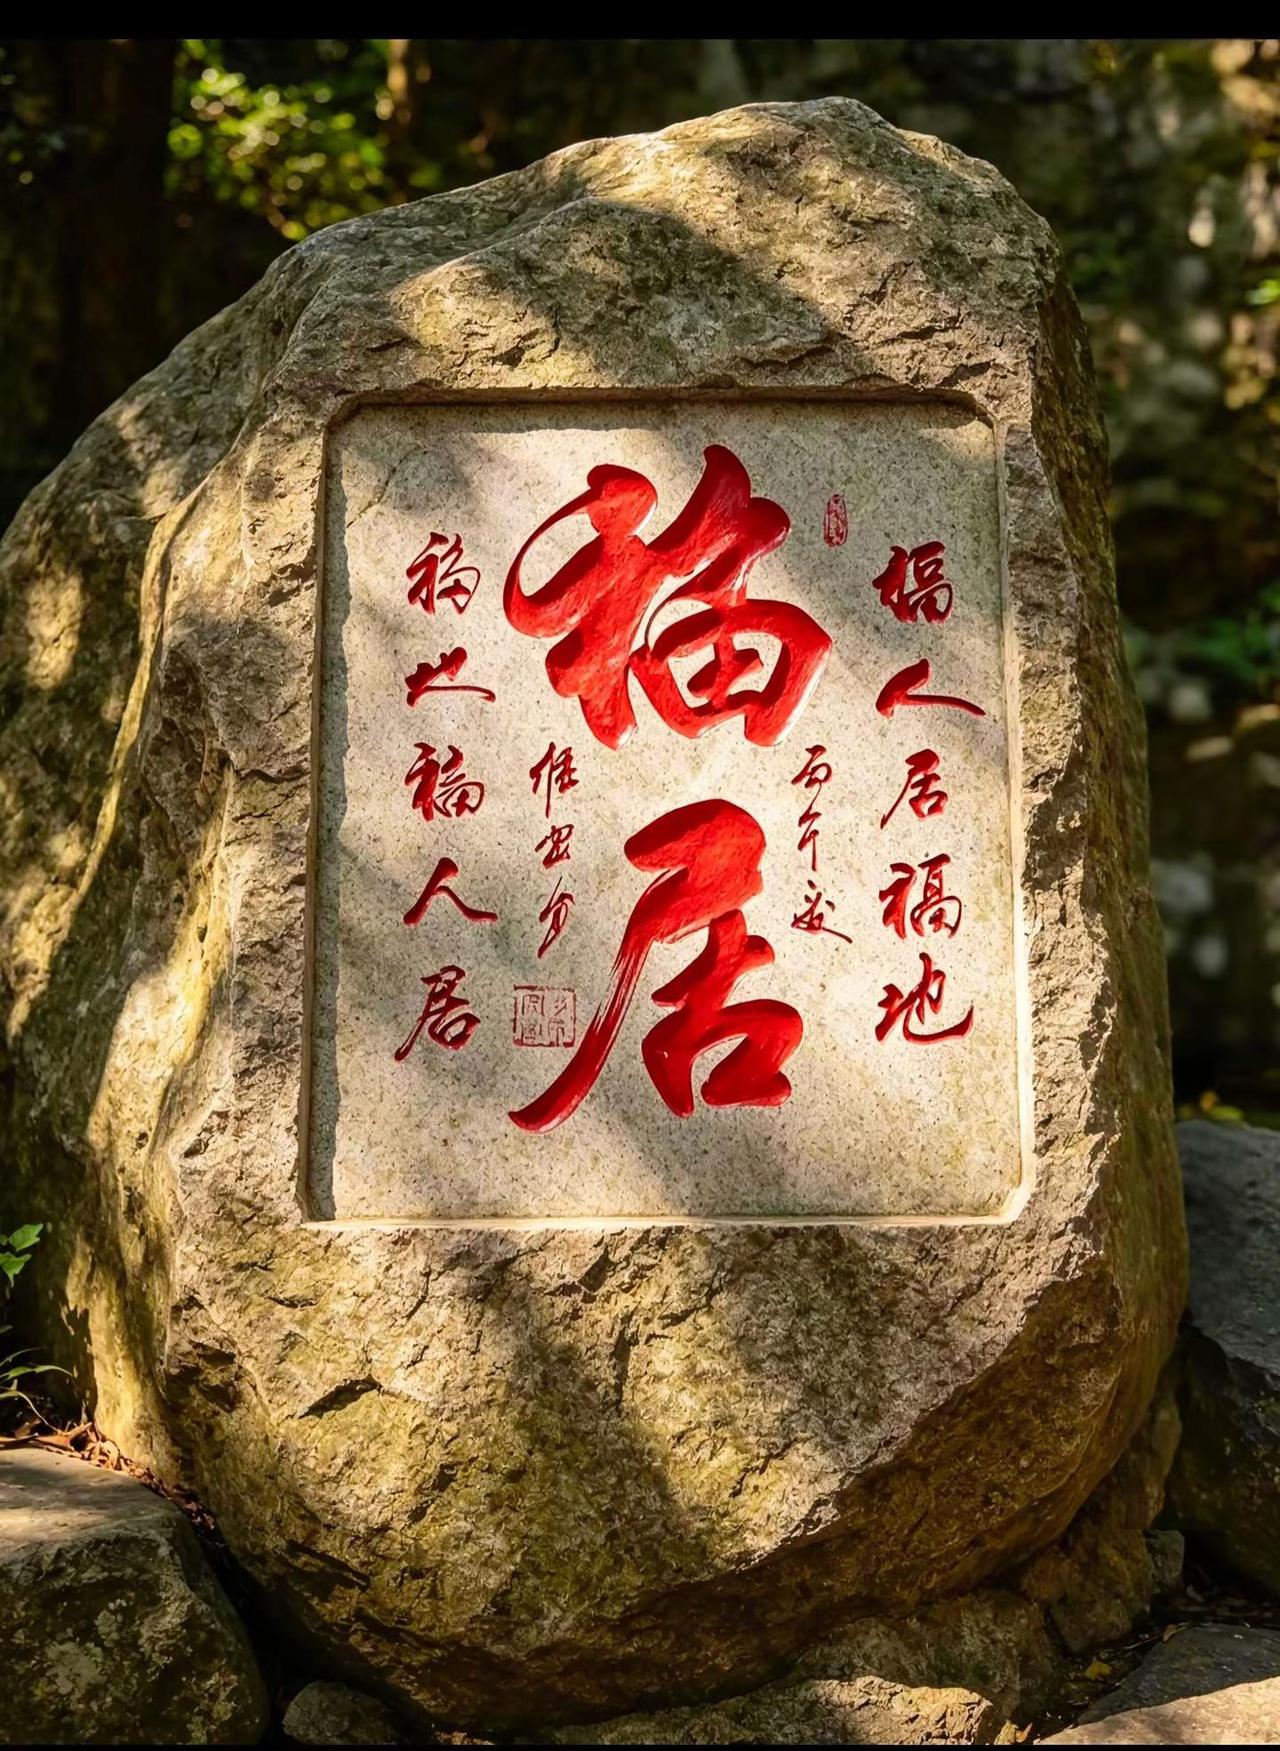 福人居福地
丙午夏
福居
福地福人居